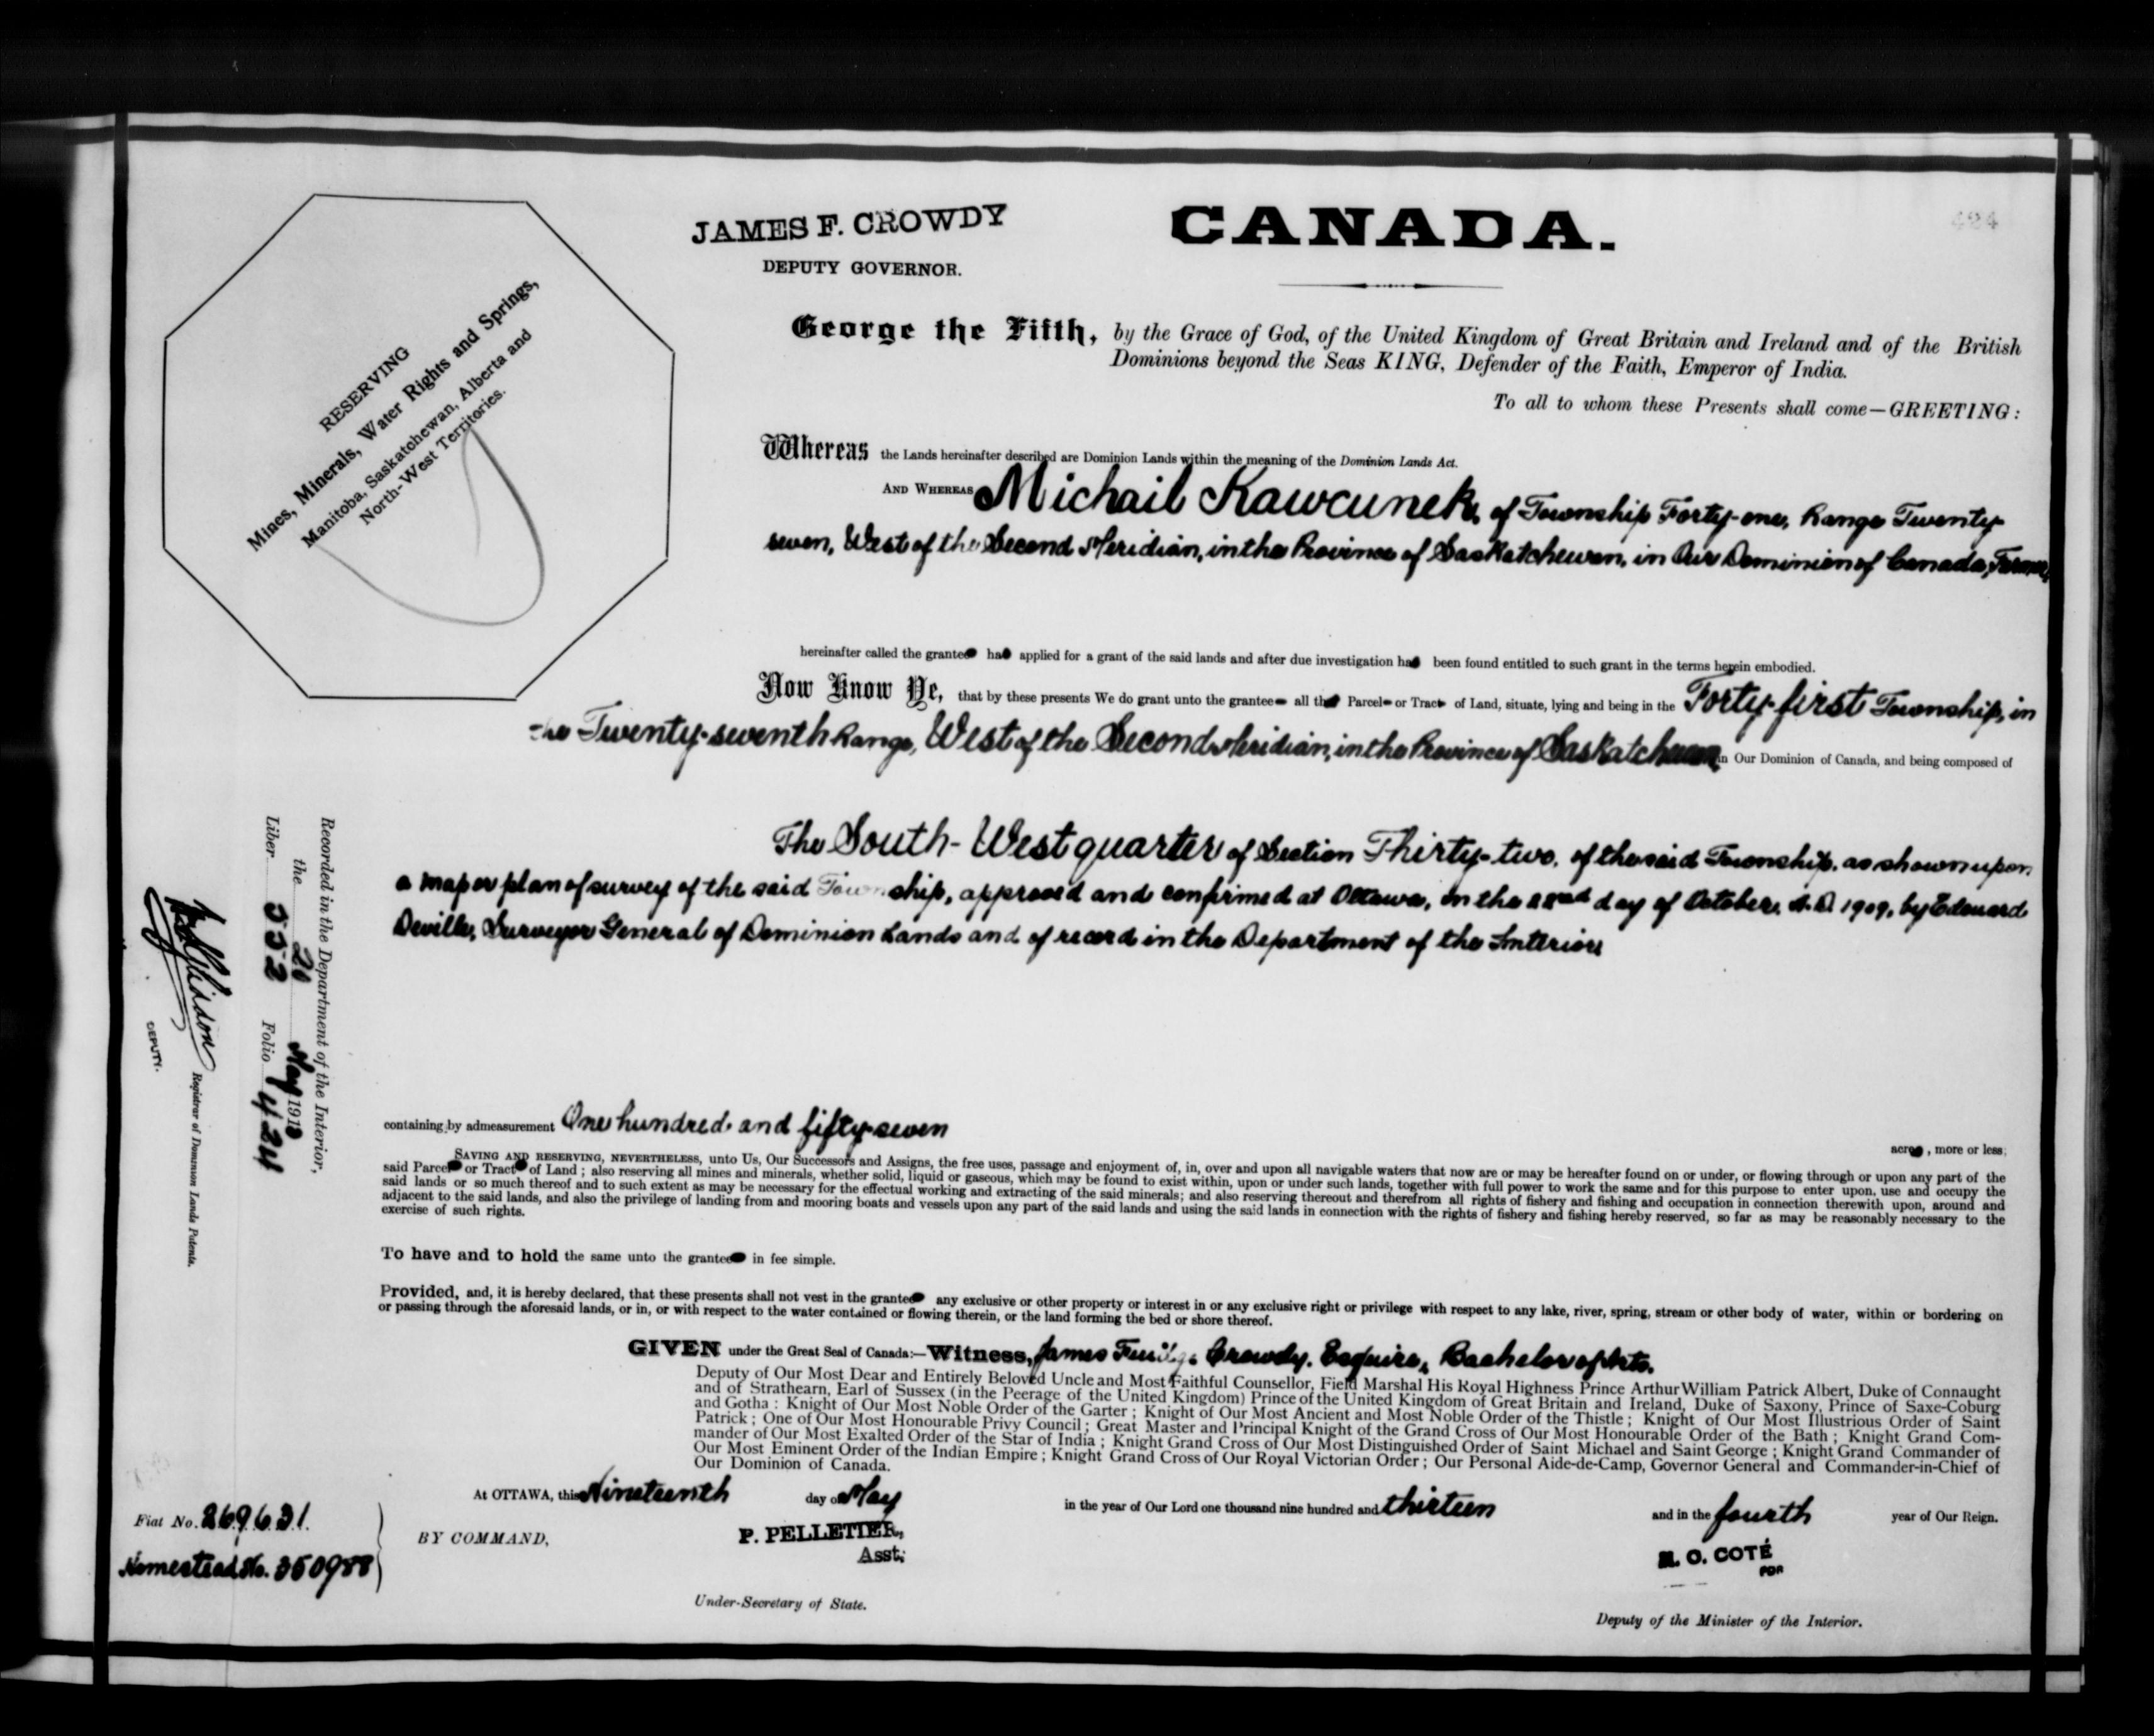 JAMES F. CROWDY
DEPUTY GOVERNOR.
CANADA.
424
RESERVING
Mines, Minerals, Water Rights and Springs,
Manitoba, Saskatchewan, Alberta and
North-West Territories.
George the Fifth, by the Grace of God, of the United Kingdom of Great Britain and Ireland and of the British
Dominions beyond the Seas KING, Defender of the Faith, Emperor of India.
To all to whom these Presents shall come—GREETING:
Whereas the Lands hereinafter described are Dominion Lands within the meaning of the Dominion Lands Act.
AND WHEREAS Michail Kawcunek, of Township Forty-one, Range Twenty-
seven, West of the Second Meridian, in the Province of Saskatchewan, in Our Dominion of Canada, Farmer,
hereinafter called the grantee has applied for a grant of the said lands and after due investigation has been found entitled to such grant in the terms herein embodied.
Now Know Ye, that by these presents We do grant unto the grantee all that Parcel or Tract of Land, situate, lying and being in the Forty-first Township, in
the Twenty-seventh Range, West of the Second Meridian, in the Province of Saskatchewan, in Our Dominion of Canada, and being composed of
The South-West quarter of Section Thirty-two, of the said Township, as shown upon
a map or plan of survey of the said Township, approved and confirmed at Ottawa, on the 22nd day of October, A.D. 1909, by Edouard
Deville, Surveyor General of Dominion Lands and of record in the Department of the Interior
containing by admeasurement One hundred and fifty-seven
acres, more or less;
SAVING AND RESERVING, NEVERTHELESS, unto Us, Our Successors and Assigns, the free uses, passage and enjoyment of, in, over and upon all navigable waters that now are or may be hereafter found on or under, or flowing through or upon any part of the
said Parcel or Tract of Land; also reserving all mines and minerals, whether solid, liquid or gaseous, which may be found to exist within, upon or under such lands, together with full power to work the same and for this purpose to enter upon, use and occupy the
said lands or so much thereof and to such extent as may be necessary for the effectual working and extracting of the said minerals; and also reserving thereout and therefrom all rights of fishery and fishing and occupation in connection therewith upon, around and
adjacent to the said lands, and also the privilege of landing from and mooring boats and vessels upon any part of the said lands and using the said lands in connection with the rights of fishery and fishing hereby reserved, so far as may be reasonably necessary to the
exercise of such rights.
To have and to hold the same unto the grantee in fee simple.
Provided, and, it is hereby declared, that these presents shall not vest in the grantee any exclusive or other property or interest in or any exclusive right or privilege with respect to any lake, river, spring, stream or other body of water, within or bordering on
or passing through the aforesaid lands, or in, or with respect to the water contained or flowing therein, or the land forming the bed or shore thereof.
GIVEN under the Great Seal of Canada:—Witness, James Crowdy, Esquire, Bachelor of Arts.
Deputy of Our Most Dear and Entirely Beloved Uncle and Most Faithful Counsellor, Field Marshal His Royal Highness Prince Arthur William Patrick Albert, Duke of Connaught
and of Strathearn, Earl of Sussex (in the Peerage of the United Kingdom) Prince of the United Kingdom of Great Britain and Ireland, Duke of Saxony, Prince of Saxe-Coburg
and Gotha: Knight of Our Most Noble Order of the Garter; Knight of Our Most Ancient and Most Noble Order of the Thistle; Knight of Our Most Illustrious Order of Saint
Patrick; One of Our Most Honourable Privy Council; Great Master and Principal Knight of the Grand Cross of Our Most Honourable Order of the Bath; Knight Grand Com-
mander of Our Most Exalted Order of the Star of India; Knight Grand Cross of Our Most Distinguished Order of Saint Michael and Saint George; Knight Grand Commander of
Our Most Eminent Order of the Indian Empire; Knight Grand Cross of Our Royal Victorian Order; Our Personal Aide-de-Camp, Governor General and Commander-in-Chief of
Our Dominion of Canada.
At OTTAWA, this Nineteenth day of May in the year of Our Lord one thousand nine hundred and thirteen and in the fourth year of Our Reign.
BY COMMAND,
P. PELLETIER,
Asst:
Under-Secretary of State.
N. O. COTÉ
FOR
Deputy of the Minister of the Interior.
Fiat No. 269631.
Homestead No. 350988
Recorded in the Department of the Interior,
the 20 May 1913
Liber 552 Folio 424
Registrar of Dominion Lands Patents.
DEPUTY.